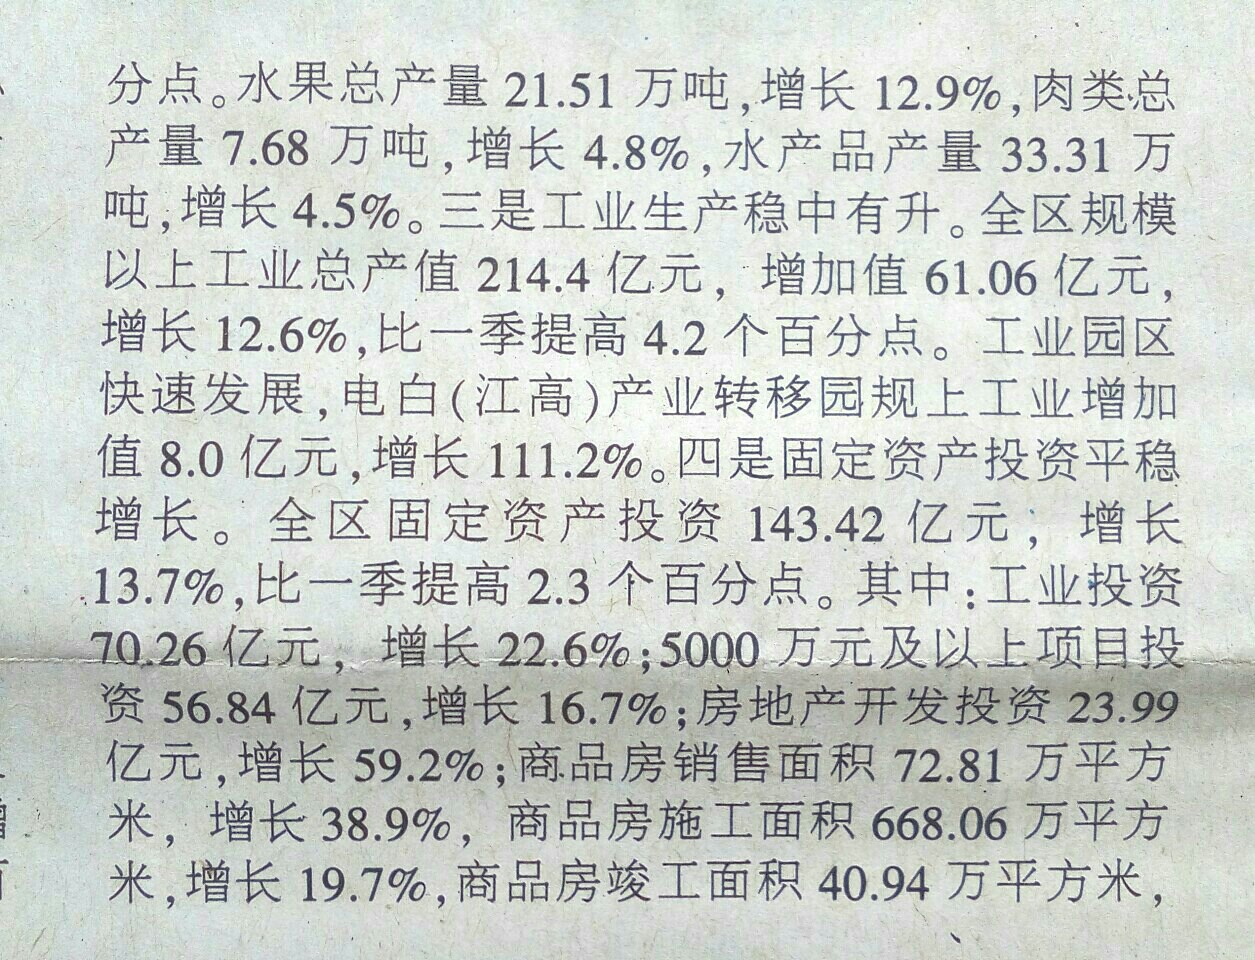 分点。水果总产量 21.51 万吨,增长 12.9%,肉类总
产量 7.68 万吨,增长 4.8%,水产品产量 33.31 万
吨,增长 4.5%。三是工业生产稳中有升。全区规模
以上工业总产值 214.4 亿元，增加值 61.06 亿元,
增长 12.6%,比一季提高 4.2 个百分点。工业园区
快速发展,电白(江高)产业转移园规上工业增加
值 8.0 亿元,增长 111.2%。四是固定资产投资平稳
增长。全区固定资产投资 143.42 亿元，增长
13.7%,比一季提高 2.3 个百分点。其中:工业投资
70.26 亿元，增长 22.6%;5000 万元及以上项目投
资 56.84 亿元,增长 16.7%;房地产开发投资 23.99
亿元,增长 59.2%;商品房销售面积 72.81 万平方
米，增长 38.9%，商品房施工面积 668.06 万平方
米,增长 19.7%,商品房竣工面积 40.94 万平方米,